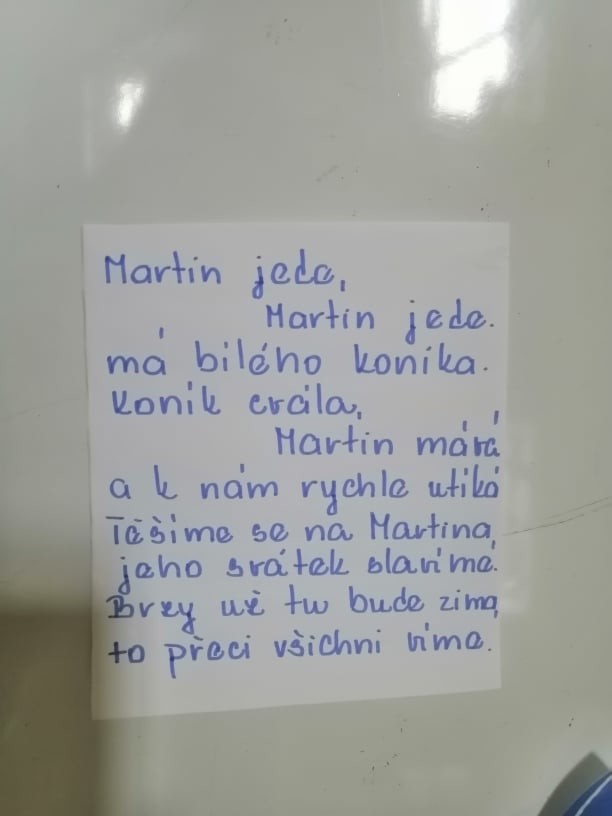 Martin jede,
Martin jede.
má bílého koníka.
Koník cválá,
Martin mává
a k nám rychle utíká
Těšíme se na Martina,
jeho svátek slavíme.
Brzy už tu bude zima,
to přeci všichni víme.